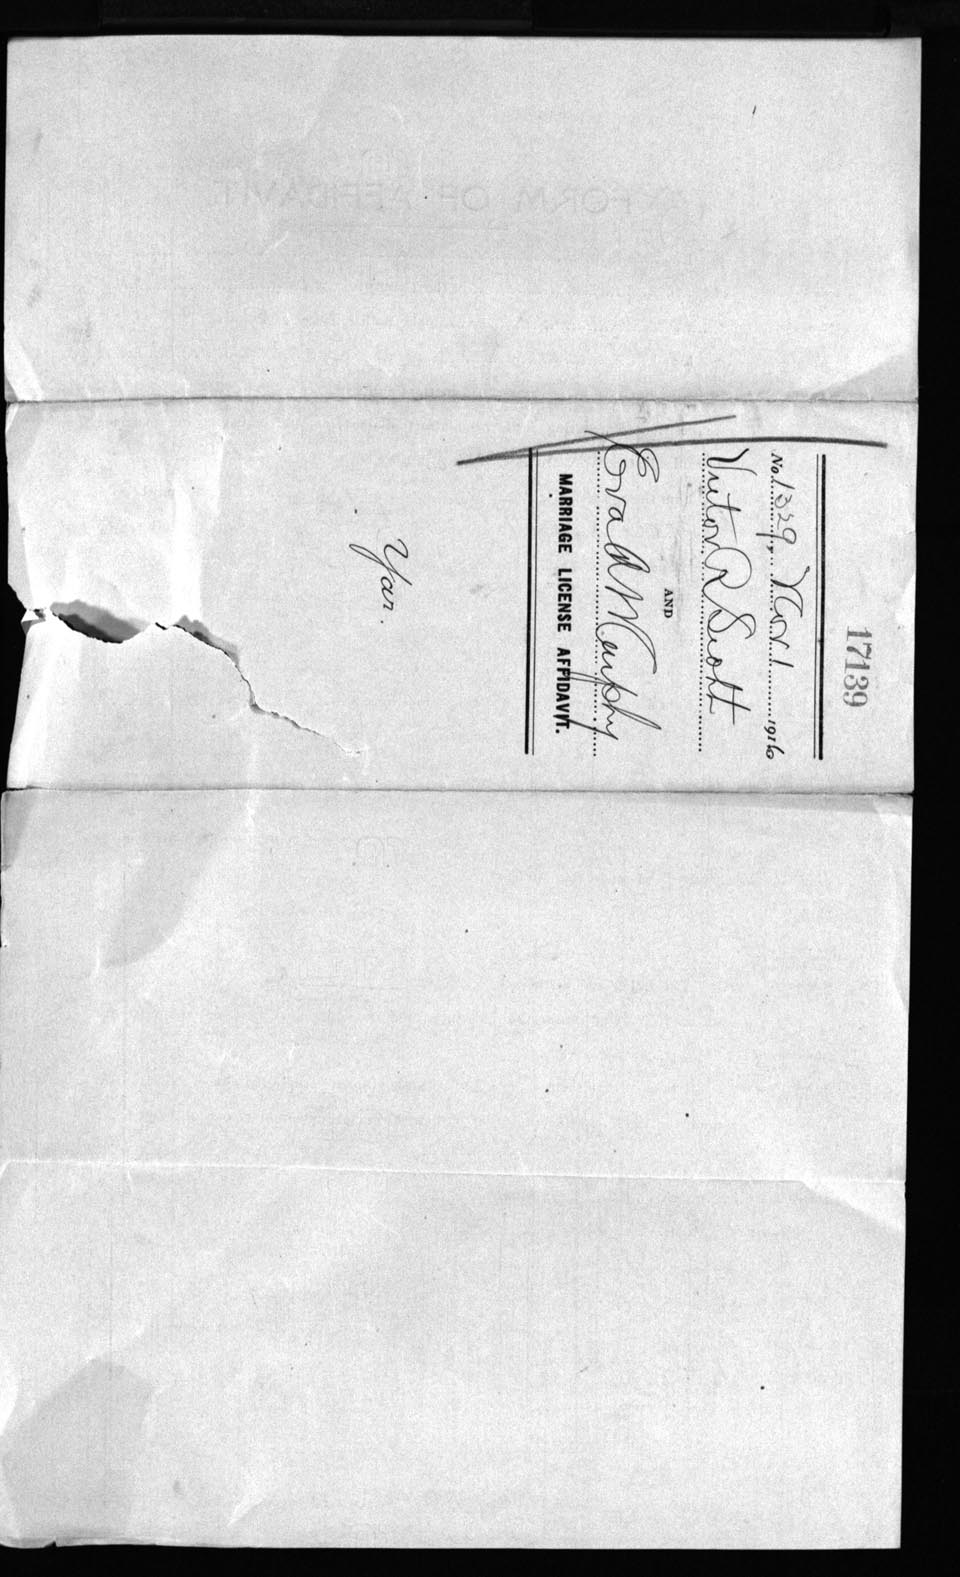 17139
No. 1329, Nov 1 1916
Victor R Scott
AND
Eva A Murphy
MARRIAGE LICENSE AFFIDAVIT.
Yar.
FORM OF AFFIDAVIT